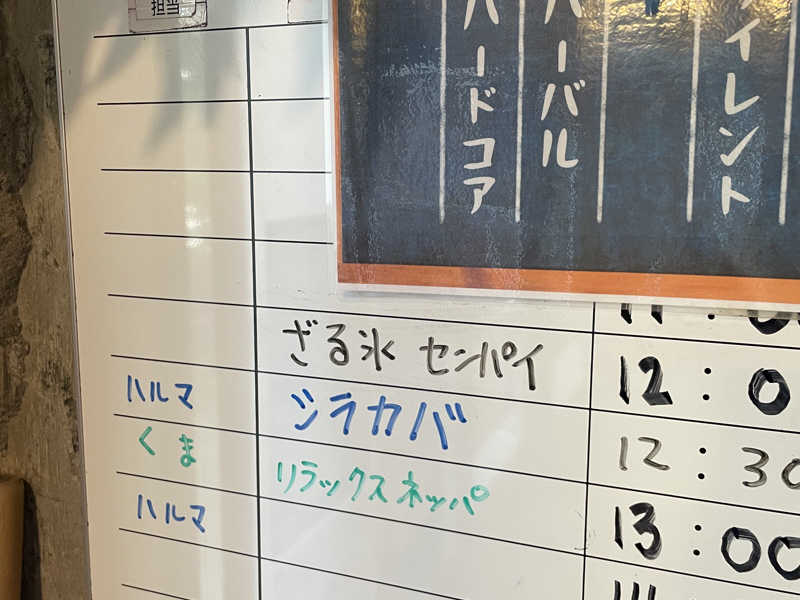 ハードコア
ハーバル
イレント
11:0
ざる氷 センパイ 12:0
ハルマ シラカバ 12:30
くま リラックスネッパ 13:00
ハルマ